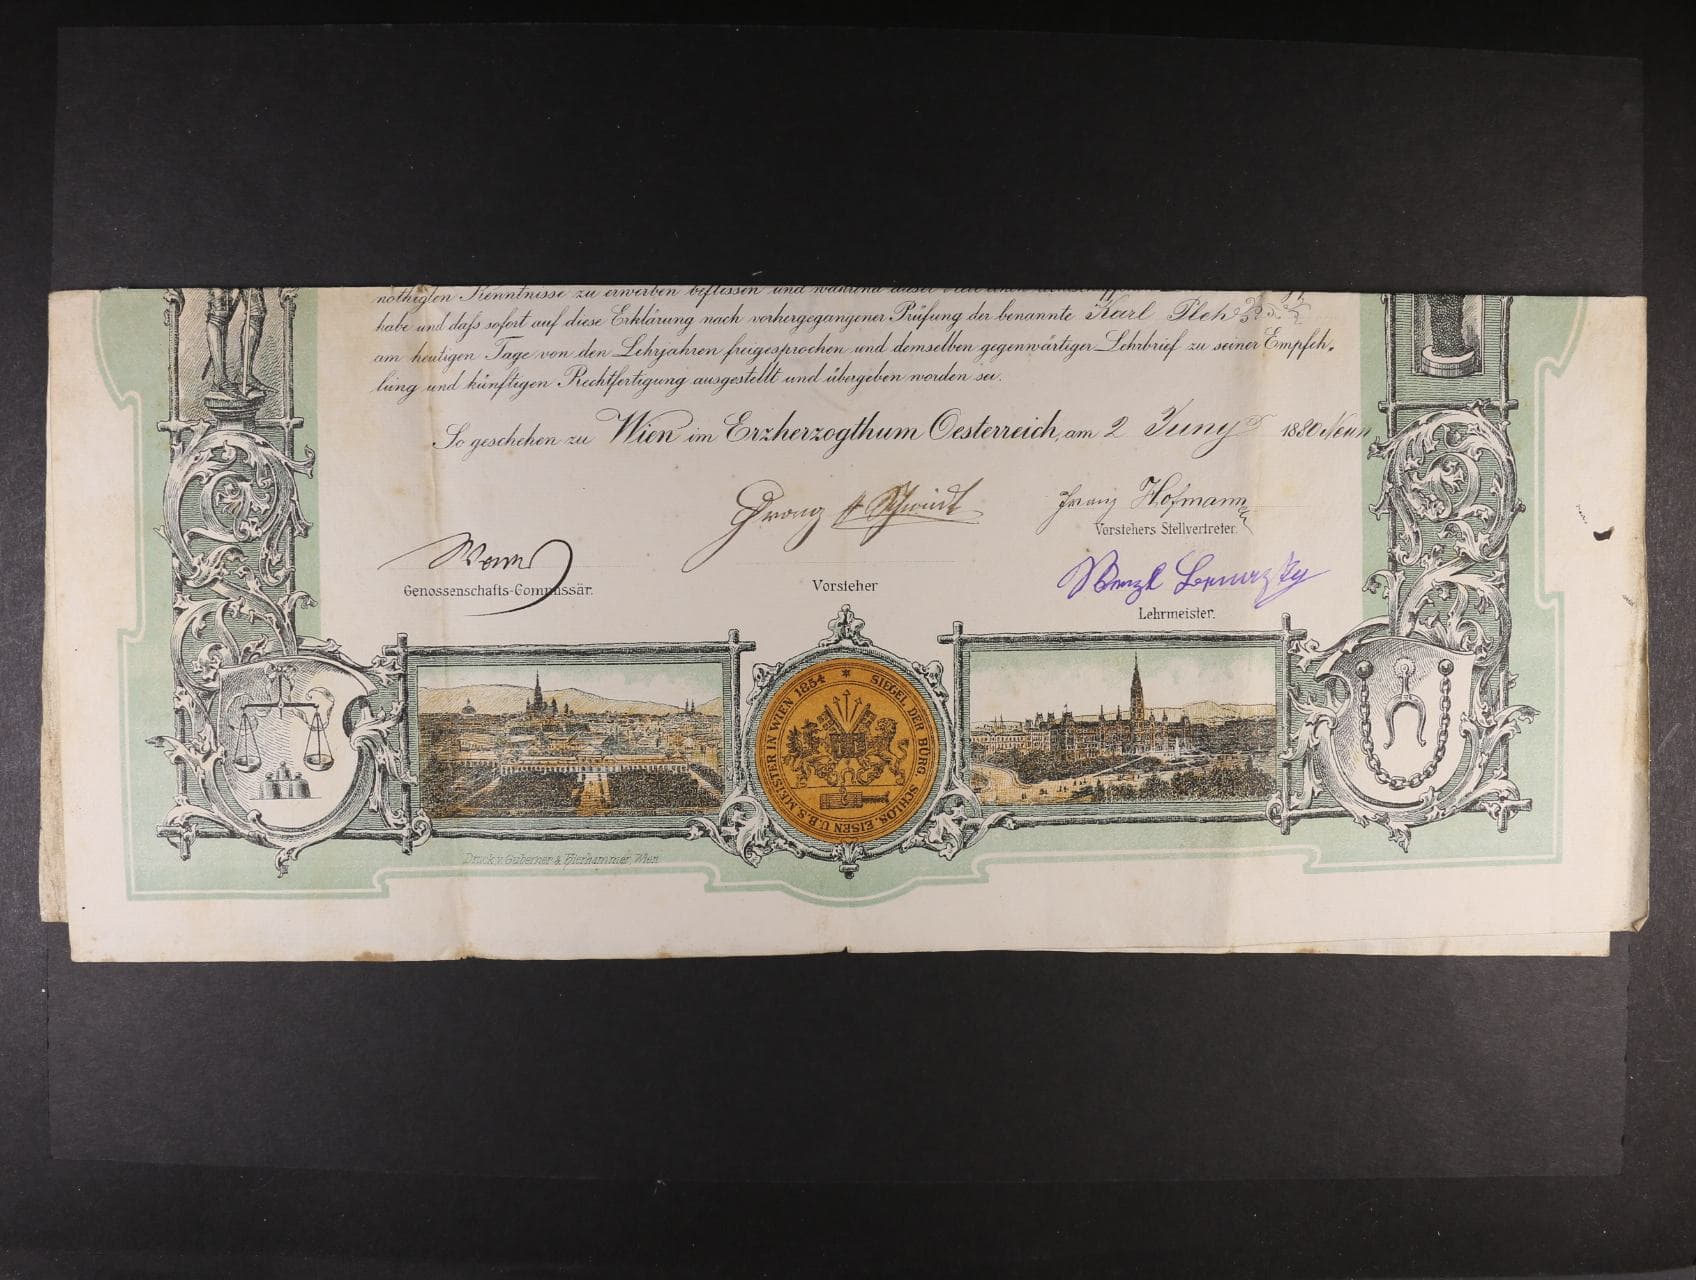 nöthigten Kenntnisse zu erwerben beflissen und während dieser
habe und daß sofort auf diese Erklärung nach vorhergegangener Prüfung der benannte Karl
am heutigen Tage von den Lehrjahren freigesprochen und demselben gegenwärtiger Lehrbrief zu seiner Empfeh-
lung und künftigen Rechtfertigung ausgestellt und übergeben worden sei.
So geschehen zu Wien im Erzherzogthum Oesterreich, am 2 Juny 1880
Franz Schmidt
Franz Hofmann
Vorstehers Stellvertreter.
Genossenschafts-Commissär.
Vorsteher
Wenzl
Lehrmeister.
SIEGEL DER BÜRG. SCHLOS. EISEN U.B.S. MEISTER IN WIEN 1854 *
Druck v. Guberner & Hierhammer, Wien